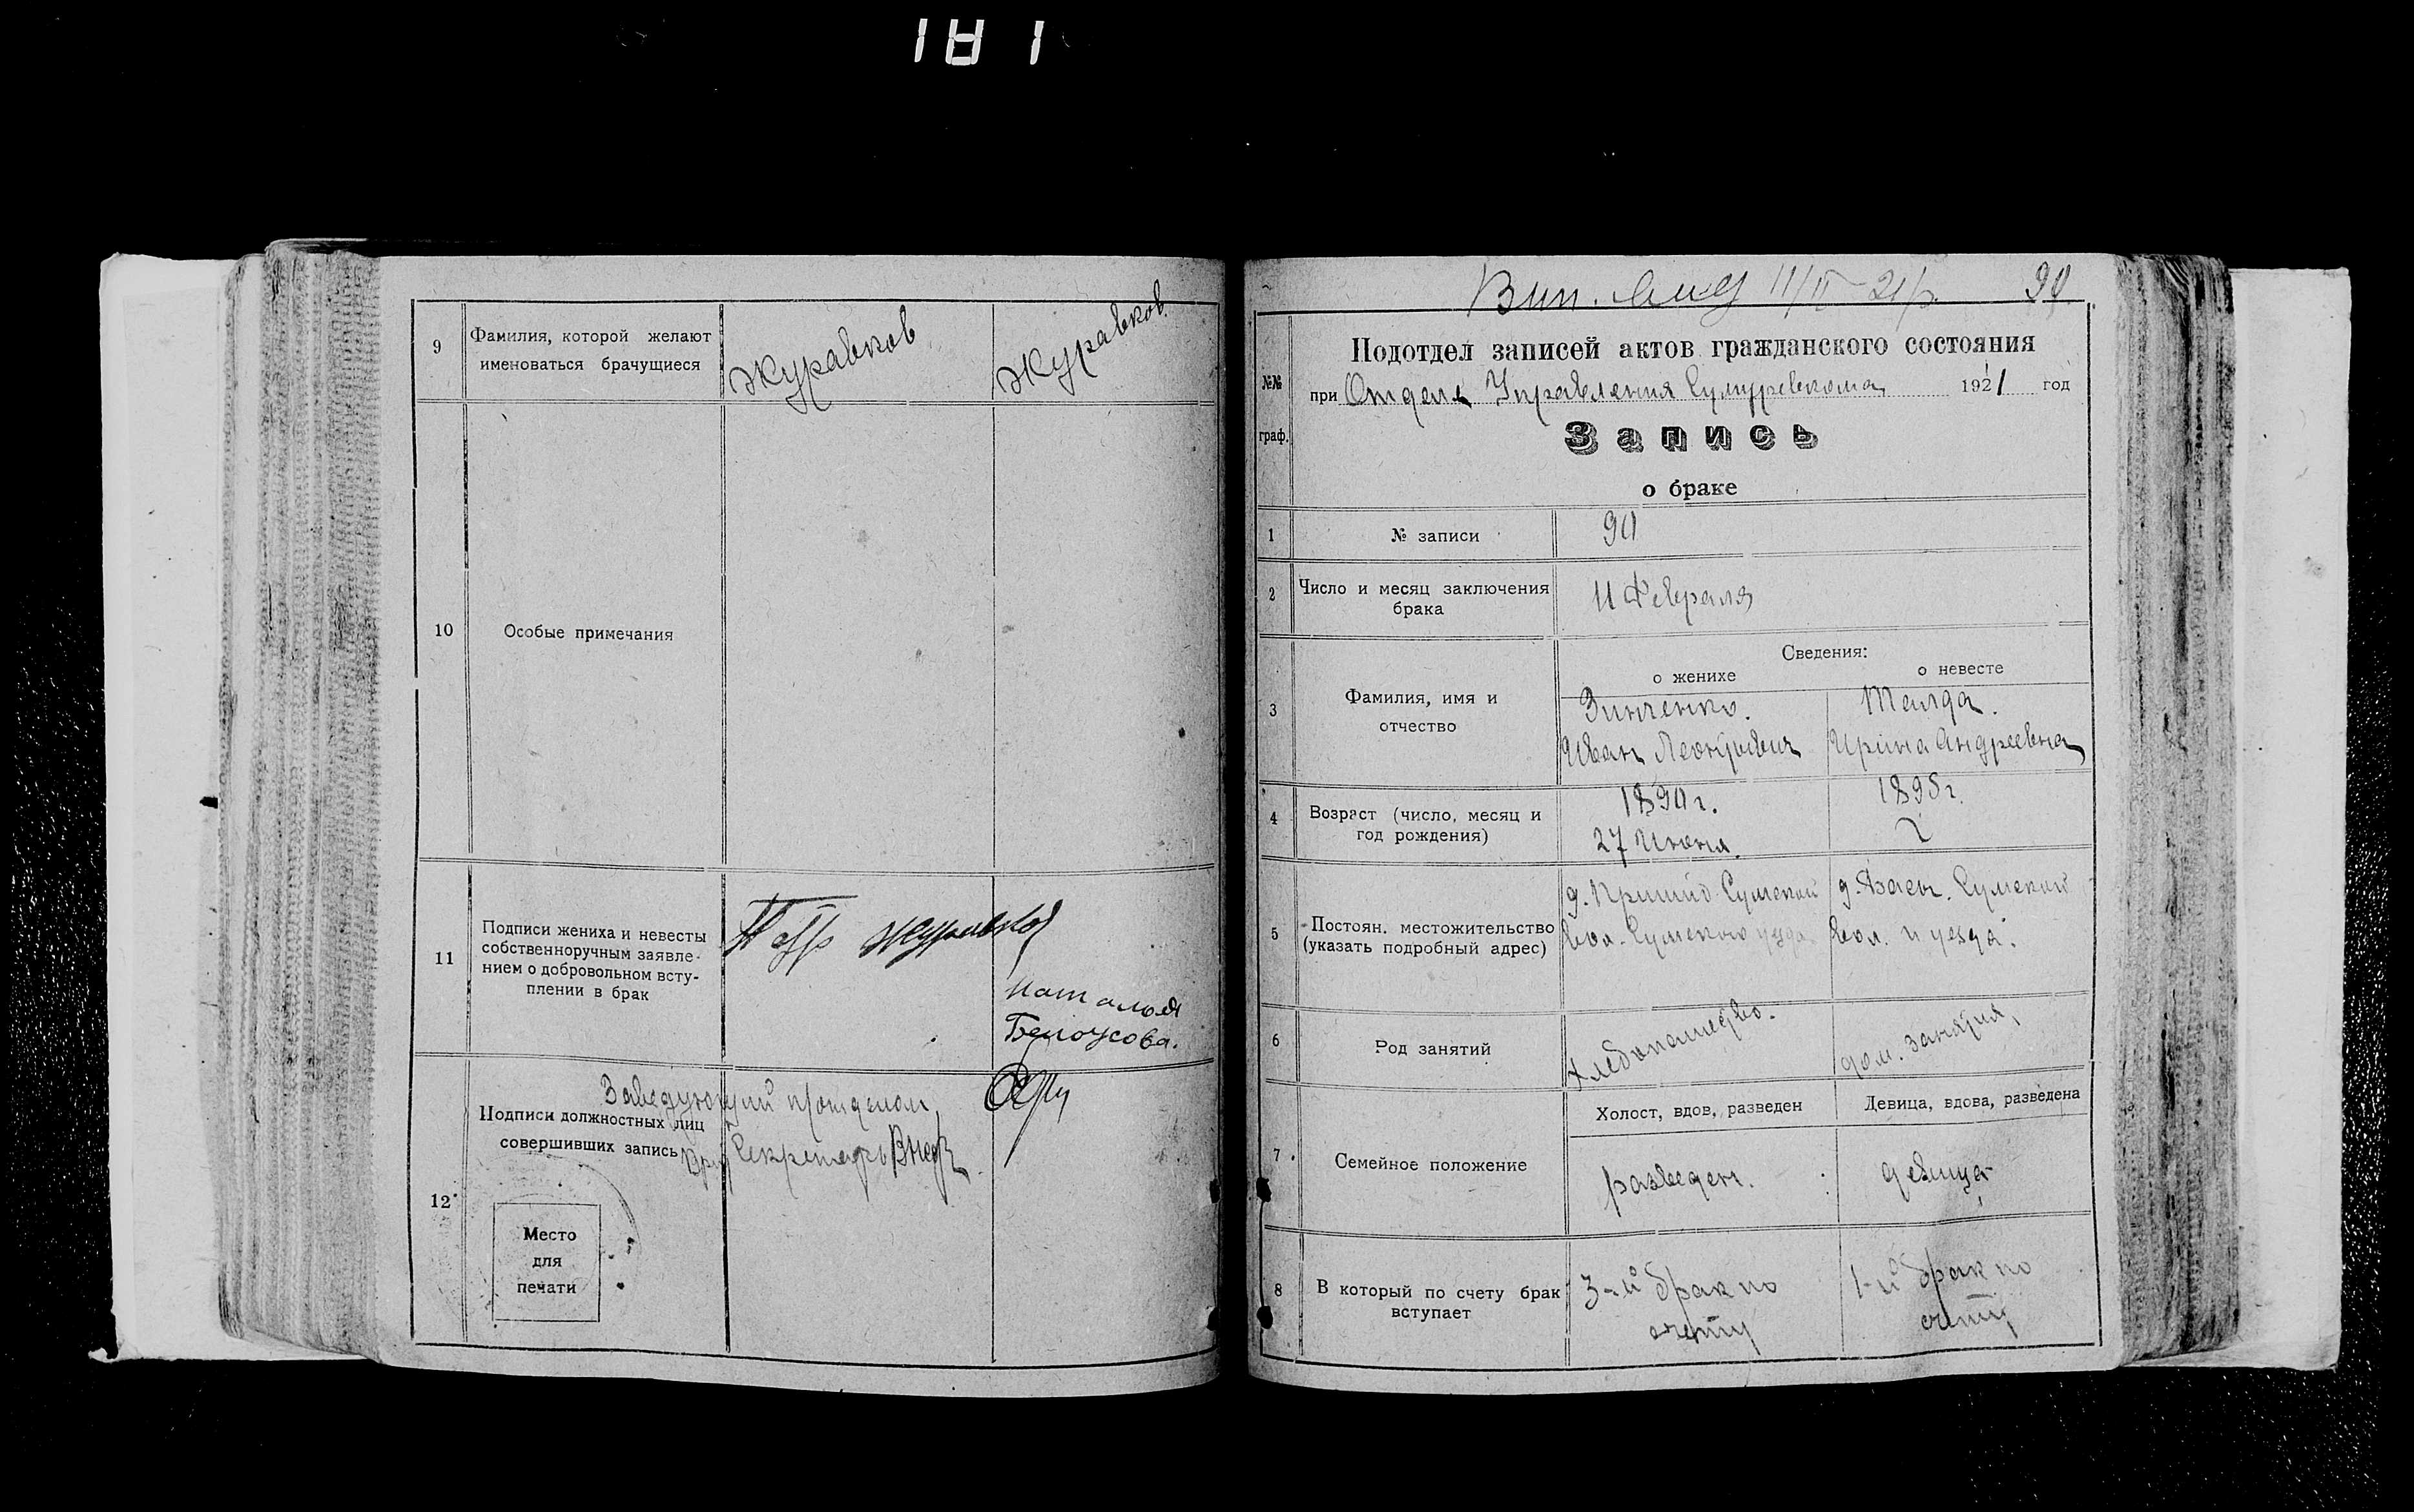 181
9
Фамилия, которой желают
именоваться брачущиеся
Журавков
Журавков.
10
Особые примечания
11
Подписи жениха и невесты
собственноручным заявле-
нием о добровольном всту-
плении в брак
Журавков
Наталья
Белоусова.
Заведующий п/отделом
Подписи должностных лиц
совершивших запись
Секретарь
12
Место
для
печати
11/II 21 р. 90
№№
граф.
Подотдел записей актов гражданского состояния
при Отделе Управления Сумуревкома 1921 год
Запись
о браке
1
№ записи
90
2
Число и месяц заключения
брака
11 Февраля
Сведения:
о женихе
о невесте
3
Фамилия, имя и
отчество
Зинченко.
Иван Леонтьевич
Ирина Андреевна
4
Возраст (число, месяц и
год рождения)
1890 г.
27 Июня.
1898 г.
5
Постоян. местожительство
(указать подробный адрес)
Сумской
вол. Сумского уезда
Сумской
вол. и уезда.
6
Род занятий
Хлебопашество.
дом. занятия,
7
Семейное положение
Холост, вдов, разведен
Девица, вдова, разведена
разведен.
девица
8
В который по счету брак
вступает
3-й брак по
счету
1-й брак по
счету